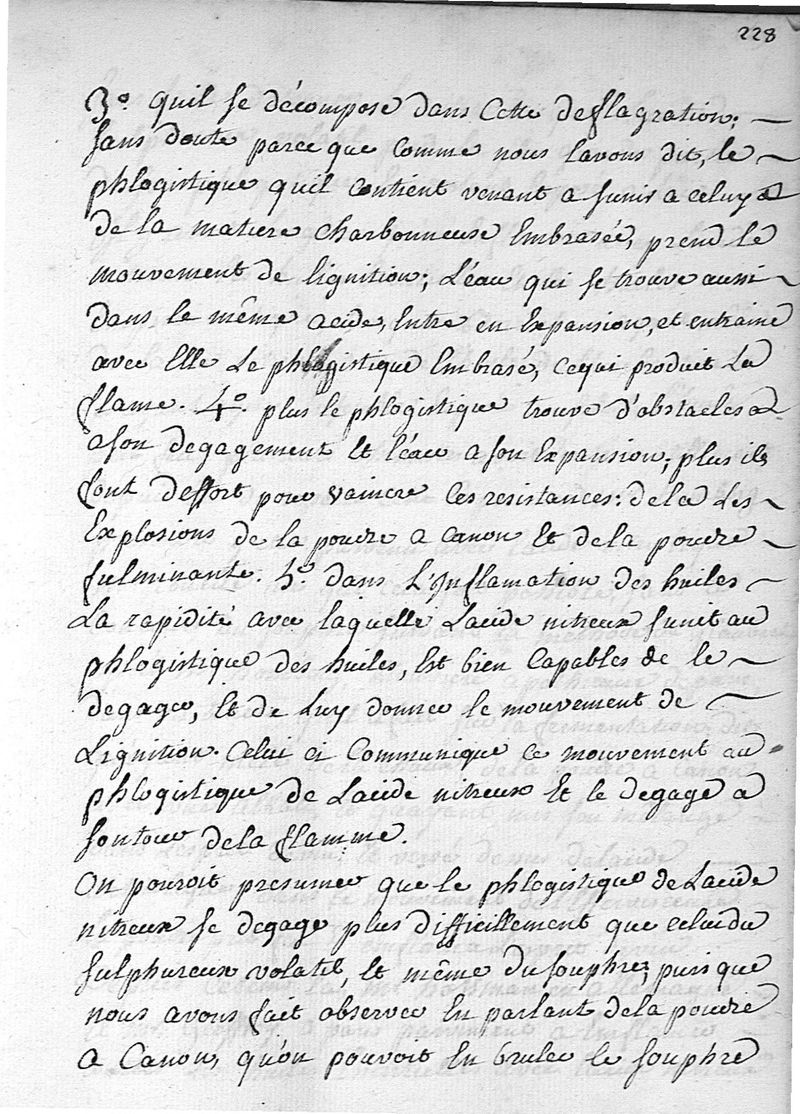 228
3.° quil se décompose dans cette deflagration;
sans doute parce que comme nous lavons dit, le
phlogistique quil contient venant a sunir a celuy
de la matiere charbonneuse Embrasée, prend le
mouvement de lignition; L'éau qui se trouve aussi
dans le même acide, Entre en Expansion, et entraine
avec Elle Le phlogistique Embrasé, cequi produit La
flame. 4.° plus le phlogistique trouve d'obstacles
a son degagement Et l'éau a son Expansion; plus ils
font d'effort pour vaincre Ces resistances: dela Les
Explosions de la poudre a canon Et dela poudre
fulminante. 5.° dans L'Inflamation des huiles
La rapidité avec laquelle Lacide nitreux sunit au
phlogistique des huiles, Est bien Capables de le
degager, Et de Luy donner le mouvement de
Lignition. Celui ci Communique ce mouvement au
phlogistique de Lacide nitreux Et le degage a
sontour dela flamme.
On pouroit presumer que le phlogistique de Lacide
nitreux se degage plus difficillement que celui du
sulphureux volatil, Et même du souphre; puis que
nous avons fait observer En parlant dela poudre
a Canon, qu'on pouvoit En bruler le souphre